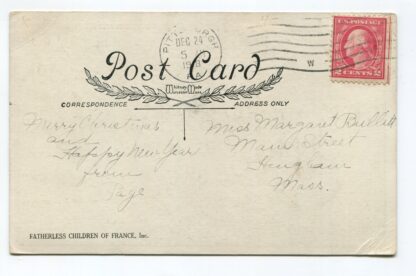 PITTSBURGH
DEC 24
5
PA
U.S. POSTAGE
2 CENTS 2
Post Card
CORRESPONDENCE
ADDRESS ONLY
Merry Christmas
and
Happy New Year
from
Page
Miss Margaret
Main Street
Hingham
Mass.
FATHERLESS CHILDREN OF FRANCE, Inc.